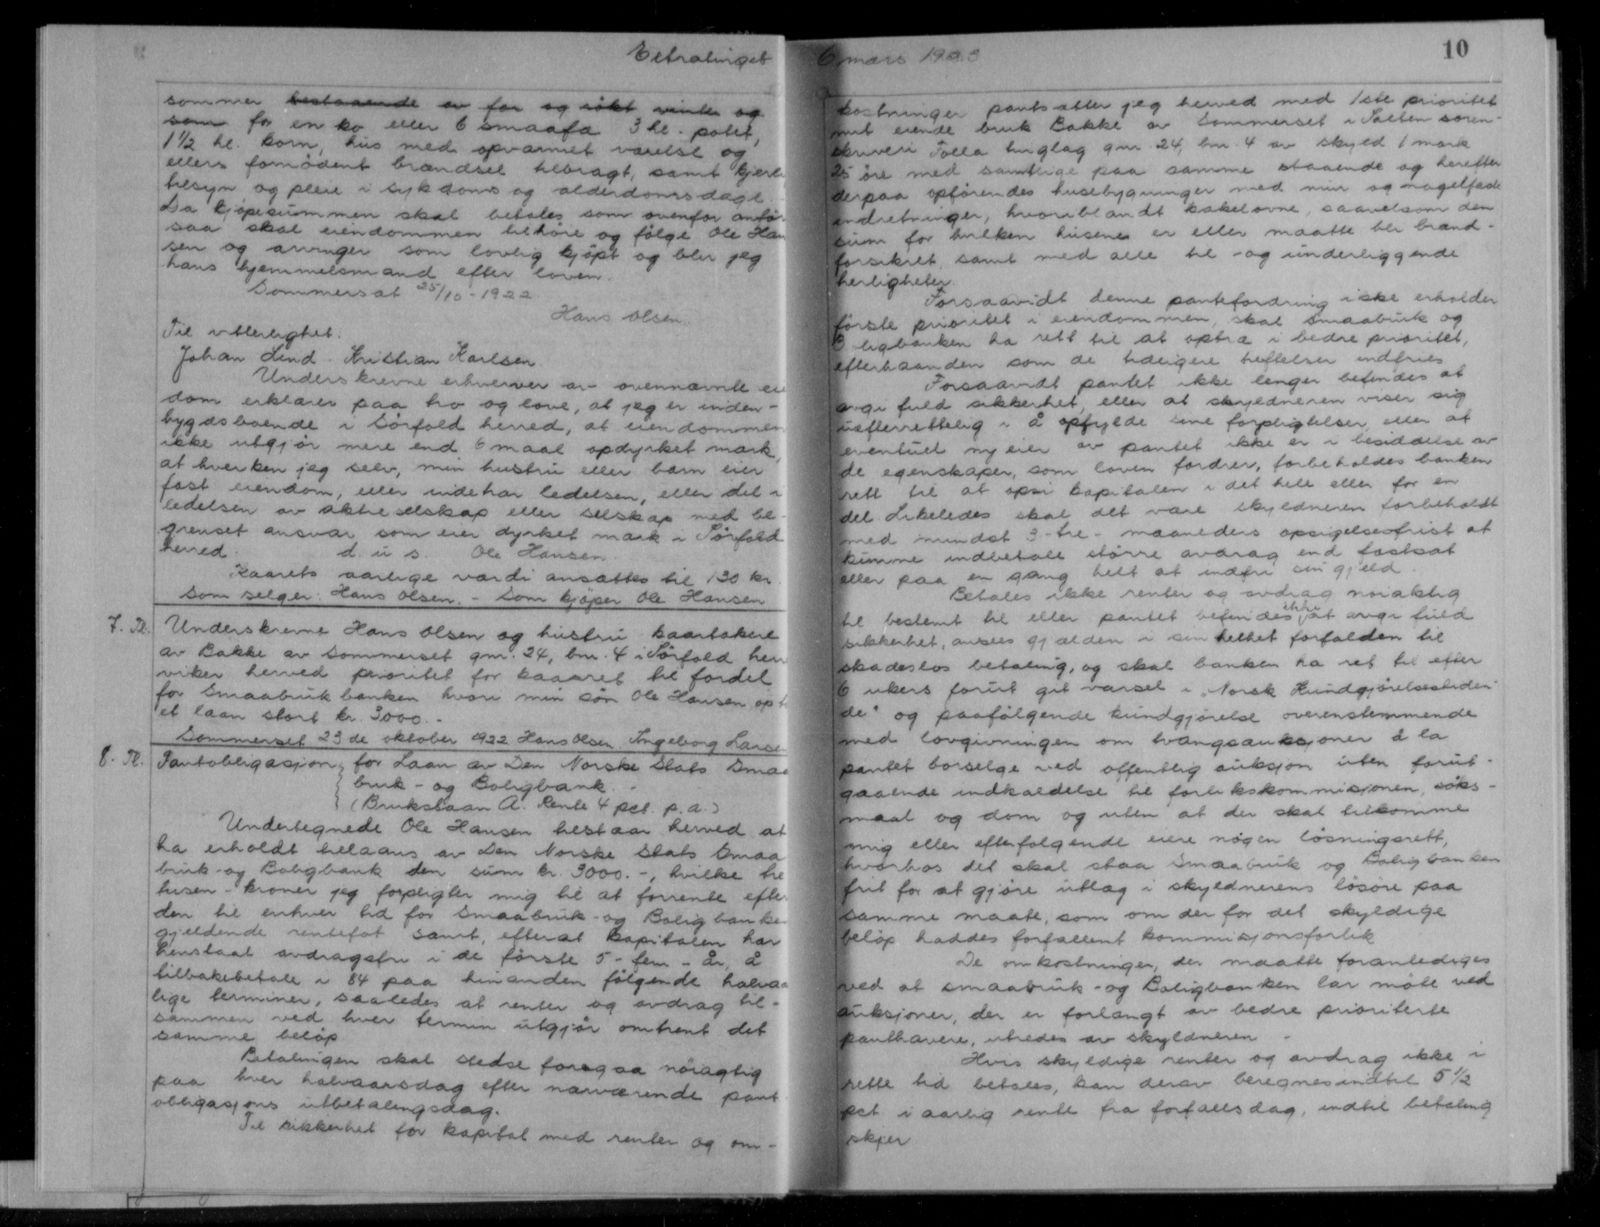 Extratinget
sommer bestaaende av for og røkt vinter og
som for en ko eller 6 smaafæ 3 hl. potet,
1½ hl. korn, hus med opvarmet værelse og
ellers fornødent brændsel tilbragt, samt kjerli
tilsyn og pleie i sykdoms og alderdomsdage.
Da kjøpesummen skal betales som ovenfor anfør
saa skal eiendommen tilhøre og følge Ole Han
sen og arvinger som lovlig kjøpt og blir jeg
hans hjemmelsmand efter loven.
Sommerset 25/10-1922
Hans Olsen.
Til vitterlighet.
Johan Lind. Kristian Karlsen.
Underskrevne erhverver av ovennævnte ei
dom erklærer paa tro og love, at jeg er inden-
bygdsboende i Sørfold herred, at eiendommen
ikke utgjør mere end 6 maal opdyrket mark,
at hverken jeg selv, min hustru eller barn eier
fast eiendom, eller indehar ledelsen, eller del i
ledelsen av aktieselskap eller selskap med be-
grenset ansvar som eier dyrket mark i Sørfold
herred. d. u s. Ole Hansen.
Kaarets aarlige værdi ansættes til 130 kr.
Som selger: Hans Olsen. - Som kjøper Ole Hansen
7. Tl. Underskrevne Hans Olsen og hustru kaartakere
av Bakke av Sommerset gnr. 24, bnr. 4 i Sørfold herr
viker herved prioritet for kaaret til fordel
for Smaabrukbanken hvori min søn Ole Hansen opt
et laan stort kr. 3000.-
Sommerset 23de oktober 1922 Hans Olsen. Ingeborg Larsen
8. Tl. Pantobligasjon for Laan av Den Norske Stats Smaa
bruk- og Boligbank.-
(Brukslaan A. Rente 4 pct. p. a.)
Undertegnede Ole Hansen tilstaar herved at
ha erholdt tillaans av Den Norske Stats Smaa
bruk- og Boligbank den sum kr. 3000.-, hvilke tre
tusen- kroner jeg forpligter mig til at forrente efter
den til enhver tid for Smaabruk- og Boligbanke
gjeldende rentefot samt, efterat kapitalen har
henstaat avdragsfri i de første 5- fem- år, å
tilbakebetale i 84 paa hinanden følgende halvaa
lige terminer, saaledes at renter og avdrag til-
sammen ved hver termin utgjør omtrent det
samme beløp
Betalingen skal stedse foregaa nøiagtig
paa hver halvaarsdag efter nærværende pant
obligasjons utbetalingsdag.
Til sikkerhet for kapital med renter og om-
6 mars 1923 10
kostninger pantsætter jeg herved med 1ste prioritet
mit eiende bruk Bakke av Sommerset i Salten soren-
skriveri Folla tinglag gnr. 24, bnr. 4 av skyld 1 mark
25 øre med samtlige paa samme staaende og herefter
derpaa opførendes husebygninger med mur og nagelfaste
indretninger, hvoriblandt kakelovne, saavelsom den
sum for hvilken husene er eller maatte bli brand-
forsikret samt med alle til- og underliggende
herligheter.
Forsaavidt denne pantefordring ikke erholder
første prioritet i eiendommen, skal Smaabruk og
Boligbanken ha rett til at optræ i bedre prioritet,
efterhaanden som de tidligere heftelser indfries
Forsaavidt pantet ikke lenger befindes at
avgi fuld sikkerhet, eller at skyldneren viser sig
uefterrettelig i å opfylde sine forpligtelser, eller at
eventuel ny eier av pantet ikke er i besiddelse av
de egenskaper, som loven fordrer, forbeholdes banken
rett til at opsi kapitalen i det hele eller for en
del. Likeledes skal det være skyldneren forbeholdt
med mindst 3- tre- maaneders opsigelsesfrist at
kunne indbetale større avdrag end fastsat
eller paa en gang helt at indfri sin gjeld.
Betales ikke renter og avdrag nøiaktig
til bestemt tid eller pantet befindes ikke at avgi fuld
sikkerhet, ansees gjælden i sin helhet forfalden til
skadesløs betaling, og skal banken ha ret til efter
6 ukers forut git varsel i „Norsk Kundgjørelsestiden-
de" og paafølgende kundgjørelse overensstemmende
med lovgivningen om tvangsauksjoner å la
pantet borselge ved offentlig auksjon uten forut-
gaaende indkaldelse til forlikskommisjonen, søks-
maal og dom og uten at der skal tilkomme
mig eller efterfølgende eiere nogen løsningsrett,
hvorhos det skal staa Smaabruk og Boligbanken
frit for at gjøre utlag i skyldnerens løsøre paa
samme maate, som om der for det skyldige
beløp haddes forfallent kommisjonsforlik
De omkostninger, der maatte foranlediges
ved at smaabruk- og Boligbanken lar møte ved
auksjoner, der er forlangt av bedre prioriterte
panthavere, utredes av skyldneren.-
Hvis skyldige renter og avdrag ikke i
rette tid betales, kan derav beregnes indtil 5½
pct i aarlig rente fra forfallsdag, indtil betaling
skjer